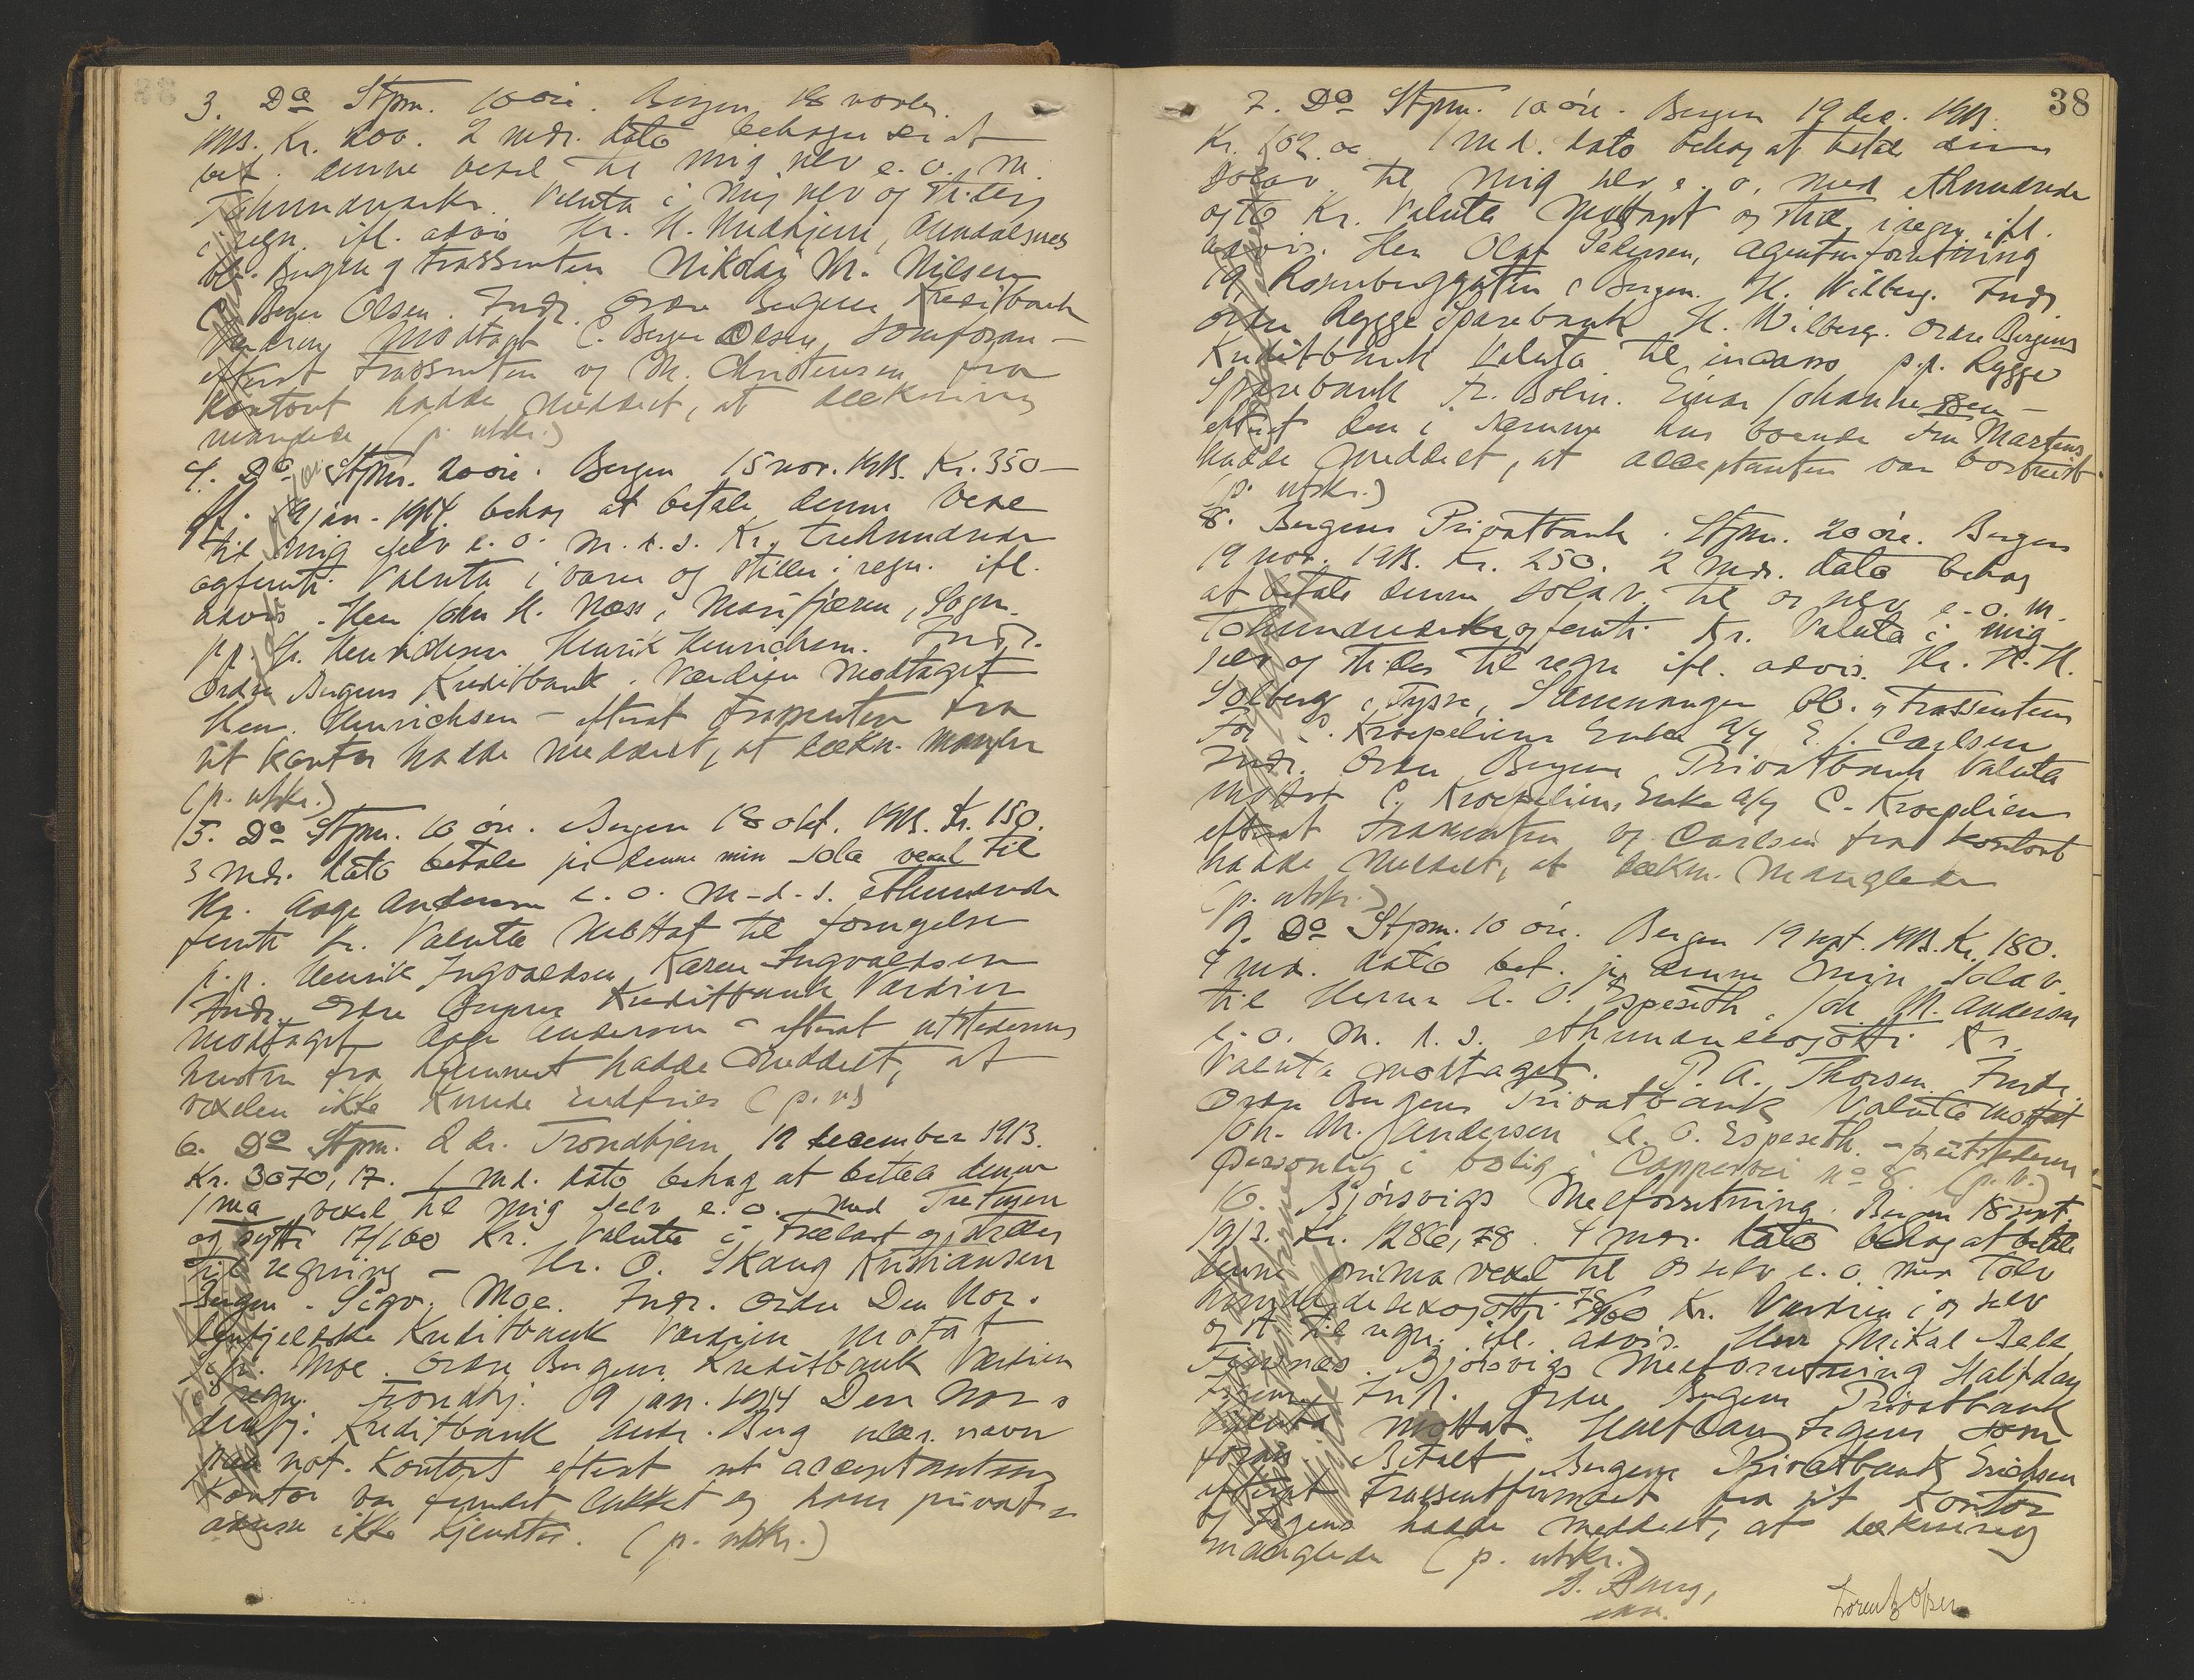 3. Do Stpm. 10 øre. Bergen 18 novbr.
1913. Kr. 200. 2 mdr. dato behager De at
bet. denne vexel til mig selv e. o. m.
Tohundrede kr. Valuta i mig selv og stilles
i regn. ifl. advis Hr. H. Midhjem, Aandalsnes
bet. Bergen og trassenten Nikolai M. Nilsen
C. Berger Olsen. Indr. Ordre Bergens Kreditbank
Værdien modtaget C. Berger Olsen, som foran –
efterat trassenten og M. Christensen fra
kontort hadde meddelt, at dækning
manglede (p. utskr.)
4. Do Stpm. 20 øre. Bergen 15 nov. 1913. Kr. 350 –
pr. 19 jan. 1914 behag at betale denne vexel
til mig selv e. o. m. d. s. Kr. trehundrede
ogfemti Valuta i varer og stilles i regn. ifl.
advis. Herr John H. Næss, Marifjæren, Sogn.
p.p. H. Henrichsen Henrik Henrichsen. Indr.
Ordre Bergens Kreditbank. Værdien modtaget
Hen. Henrichsen – efterat trassenten fra
sit kontor hadde meddelt, at dækn. mangler
(p. utskr.)
5. Do Stpm. 10 øre. Bergen 18 okt. 1913. Kr. 150.
3 mdr. dato betaler jeg denne min sola vexel til
Hr. Aage Andersen e. o. m. d. s. ethundrede
femti Kr. Valuta mottat til fornøgelse
p.p. Henrik Ingvaldsen Karen Ingvaldsen
Indr. Ordre Bergens Kreditbank Værdien
modtaget Aage Andersen – efterat utstederens
hustru fra hjemmet hadde meddelt, at
vexelen ikke kunde indfries (p. u)
6. Do Stpm. 2 kr. Trondhjem 12 december 1913.
Kr. 3070,17. 1 md. dato behag at betale denne
1ma vexel til mig selv e. o. med Tretusen
og sytti 17/100 Kr. Valuta i trælast og stilles
til regning – Hr. O. Skaug Kristiansen
Bergen. Sigv. Moe. Indr. Ordre Den Nor-
denfjeldske Kreditbank Værdien motat
Sigv. Moe. Ordre Bergens Kreditbank Værdien
i regn. Trondhj. 9 jan. 1914 Den Nor-
denfj. Kreditbank Andr. Berg ulæs. navn
paa not. kontort efterat acceptantens
kontor var fundet lukket og hans privat-
adresse ikke kjendtes. (p. utskr.)
38
7. Do Stpm. 10 øre. Bergen 19 dec. 1913.
Kr. 102.00 1 md. dato behag at betale denne
solav. til mig selv e. o. med ethundrede
ogto Kr. Valuta modtaget og stilles i regn. ifl.
advis. Herr Olaf Pedersen, Agenturforretning
19, Rosenberggaten, Bergen. H. Wilberg. Indr.
Ordre Rygge Sparebank H. Wilberg. Ordre Bergens
Kreditbank Valuta til incasso p.p. Rygge
Sparebank Fr. Bolin. Einar Johannessen –
efterat den i samme hus boende Fru Martens
hadde meddelt, at acceptanten var bortreist
(p. utskr.)
8. Bergens Privatbank. Stpm. 20 øre. Bergen
19 nov. 1913. Kr. 250. 2 mdr. dato behag
at betale denne solav. til os selv e. o. m.
Tohundrede ogfemti Kr. Valuta i mig
selv og stilles til regn. ifl. advis. Hr. H. H.
Solberg, Tysse, Samnanger bet. og trassenten
For C. Kroepeliens Enke A/S E. J. Carlsen
Indr. Ordre Bergens Privatbank Valuta
modtat C. Kroepeliens Enke A/S C. Kroepelien
efterat trassenten og Carlsen fra kontort
hadde meddelt, at dækn. manglede
(p. utskr.)
9. Do Stpm. 10 øre. Bergen 19 sept. 1913. Kr. 180.
4 md. dato bet. jeg denne min sola v.
til Herrer A. O. Espeseth, Joh. M. Andersen
e. o. m. d. s. ethundredeogotti Kr.
Valuta modtaget. P. A. Thorsen. Indr.
Ordre Bergens Privatbank Valuta modtat
Joh. M. Andersen A. O. Espeseth. – for utstederen
personlig i bolig Cappesvei no 8. (p. u.)
10. Bjørsvigs Melforretning. Bergen 18 sept.
1913. Kr. 1286,78. 4 mdr. dato behag at betale
denne prima vexel til os selv e. o. med Tolv
hundredeseksogotti 78/100 Kr. Værdien i os selv
og st. til regn. ifl. advis. Herr Mikal
Bjørsvigs Melforretning Halfdan
Indr. Ordre Bergens Privatbank
Valuta mottat. Halfdan som
foran Betalt Bergens Privatbank Erichsen
efterat trassentfirmaet fra sit kontor
hadde meddelt, at dækning
manglede (p. utskr.)